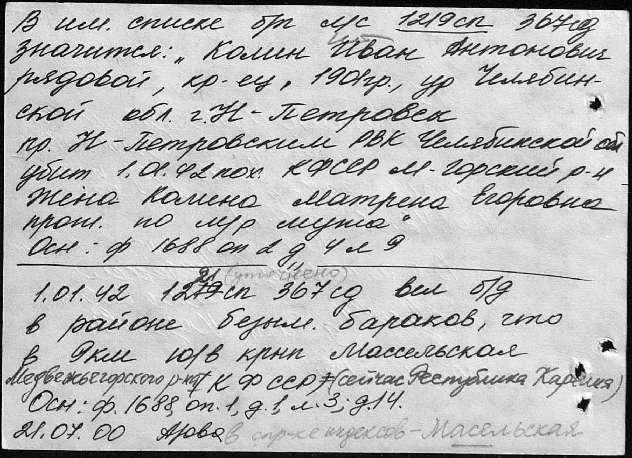 В им. списке б/п м/с 1219сп 367сд
значится: „Колин Иван Антонович
рядовой, кр-ец, 1901гр., ур Челябин-
ской обл. г. Н-Петровск
пр. Н-Петровским РВК Челябинской обл
убит 1.01.42 пох. КФССР М-горский р-н
Жена Колина Матрена Егоровна
прож. по м/р мужа"
Осн: ф 1688 оп 2 д 4 л 9
21 (уточнено)
1.01.42 1219сп 367сд вел б/д
в районе безым. бараков, что
в 9км ю/в крнп Массельская
Медвежьегорского р-на КФССР (сейчас Республика Карелия)
Осн: ф. 1688, оп. 1, д. 1, л. 3; д. 14.
21.07.00 в спр-ке индексов - Масельская